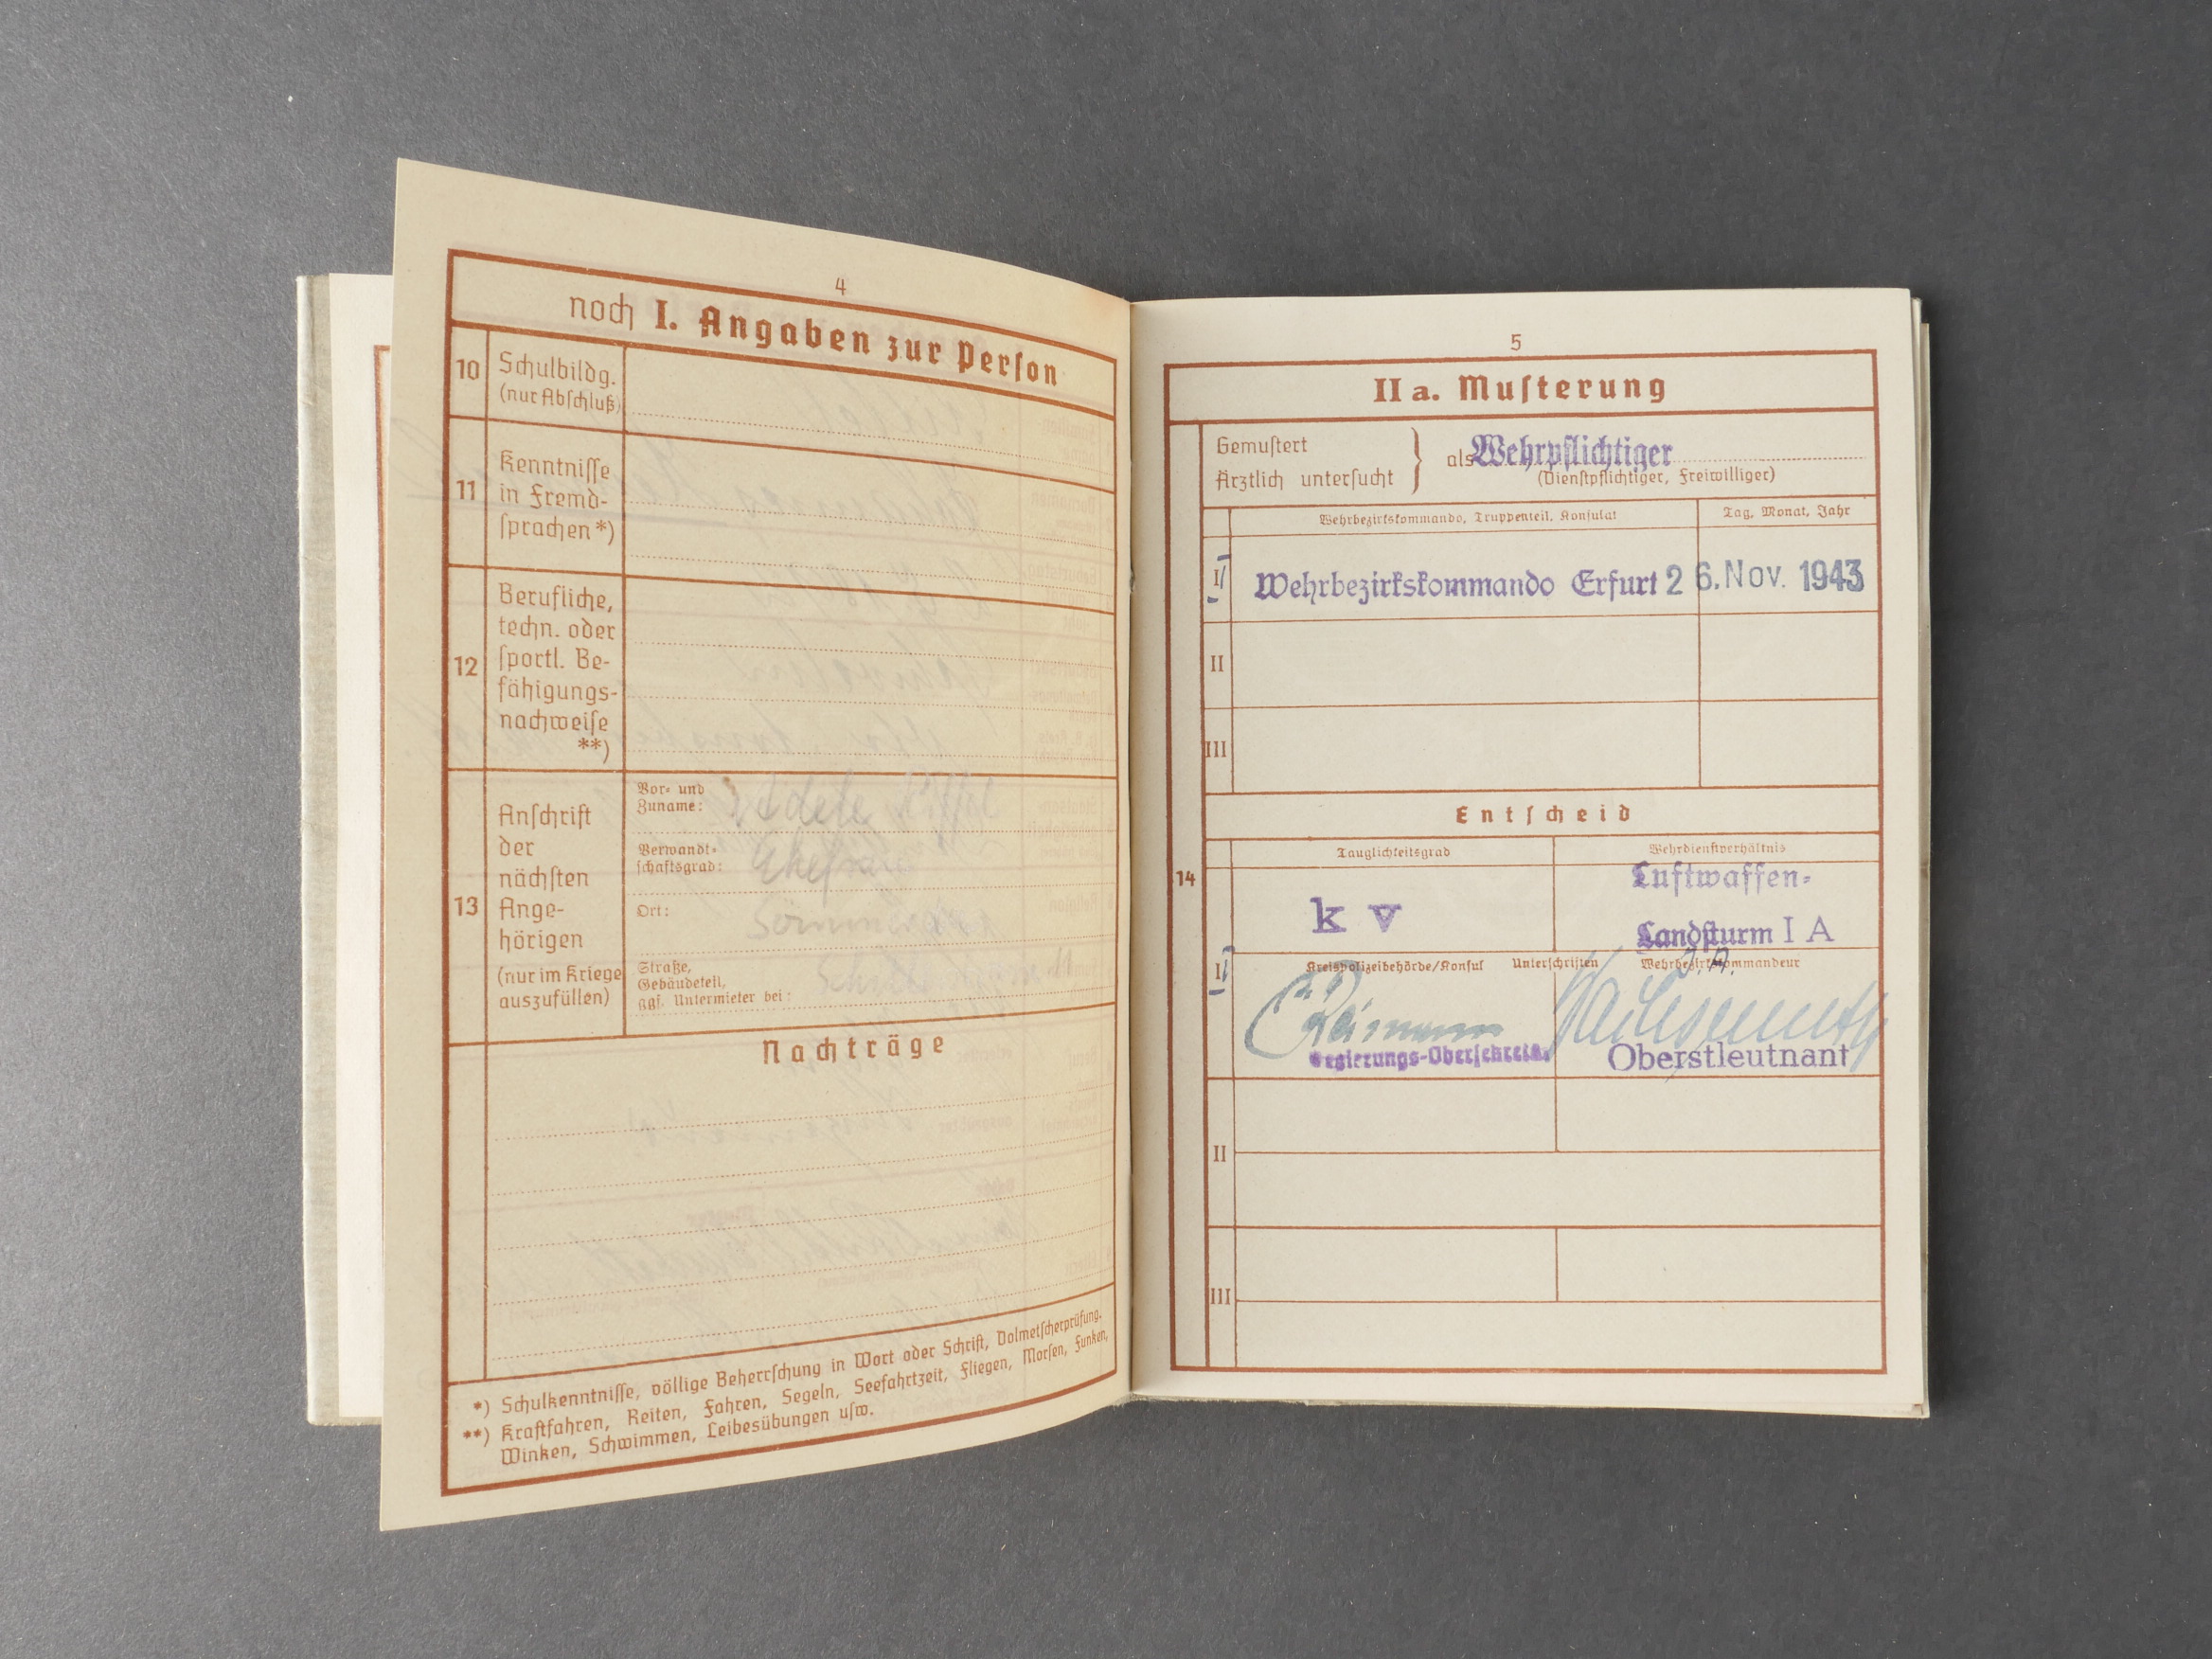 4
noch I. Angaben zur Perſon
10
Schulbildg.
(nur Abſchluß)
11
Kenntniſſe
in Fremd-
ſprachen *)
12
Berufliche,
techn. oder
ſportl. Be-
fähigungs-
nachweiſe
**)
13
Anſchrift
der
nächſten
Ange-
hörigen
(nur im Kriege
auszufüllen)
Vor- und
Zuname:
Adele
Verwandt-
ſchaftsgrad:
Ehefrau
Ort:
Straße,
Gebäudeteil,
ggf. Untermieter bei:
Nachträge
*) Schulkenntniſſe, völlige Beherrſchung in Wort oder Schrift, Dolmetſcherprüfung.
**) Kraftfahren, Reiten, Fahren, Segeln, Seefahrtzeit, Fliegen, Morſen, Funken,
Winken, Schwimmen, Leibesübungen uſw.
5
II a. Muſterung
Gemuſtert
Ärztlich unterſucht } als Wehrpflichtiger
(Dienſtpflichtiger, Freiwilliger)
Wehrbezirkskommando, Truppenteil, Konſulat
Tag, Monat, Jahr
I Wehrbezirkskommando Erfurt 26. Nov. 1943
II
III
Entſcheid
14
Tauglichkeitsgrad
Wehrdienſtverhältnis
k v
Luftwaffen-
Landſturm I A
I
Kreispolizeibehörde/Konſul Unterſchriften Wehrbezirkskommandeur
Regierungs-Oberſekretär
Oberstleutnant
II
III